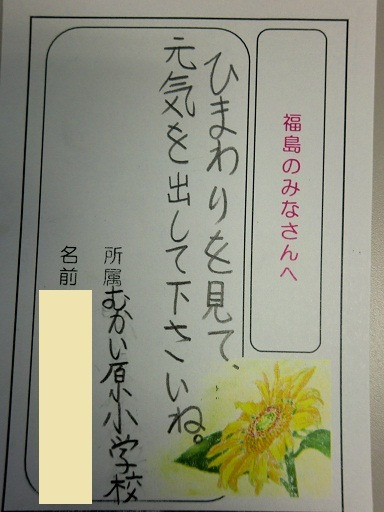 福島のみなさんへ
ひまわりを見て、
元気を出して下さいね。
所属 むかい原小学校
名前